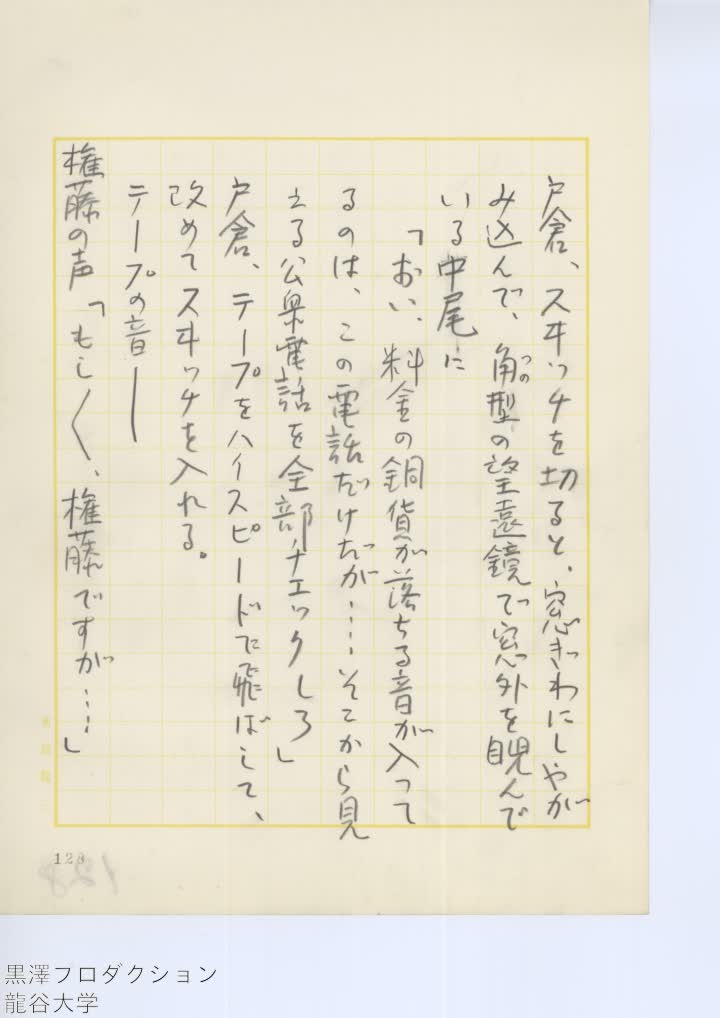 戸倉、スヰッチを切ると、窓ぎわにしゃが
み込んで、角型の望遠鏡で窓外を睨んで
つの
いる中尾に
「おい、料金の銅貨が落ちる音が入って
るのは、この電話だけだが……そこから見
える公衆電話を全部チェックしろ」
戸倉、テープをハイスピードで飛ばして、
改めてスヰッチを入れる。
テープの音――
権藤の声「もし〱、権藤ですが……」
128
128
黒澤プロダクション
龍谷大学